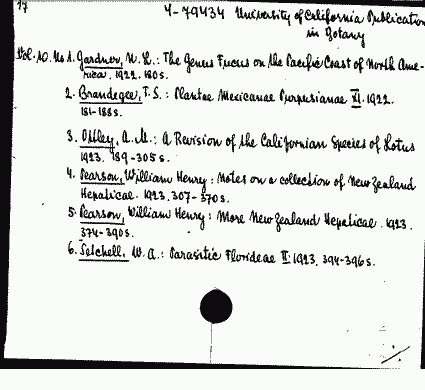 17
4-79434 University of California Publication
in Botany
Vol. 10. No 1. Gardner, N. L.: The Genus Fucus on the Pacific Coast of North Ame-
rica. 1922. 180 s.
2. Brandegee, T. S.: Plantae Mexicanae Purpusianae XI. 1922.
181-188 s.
3. Ottley, A. M.: A Revision of the Californian Species of Lotus
1923. 189-305 s.
4. Pearson, William Henry: Notes on a collection of New Zealand
Hepaticae. 1923. 307-370 s.
5. Pearson, William Henry: More New Zealand Hepaticae. 1923.
374-390 s.
6. Setchell, W. A.: Parasitic Florideae II. 1923. 394-396 s.